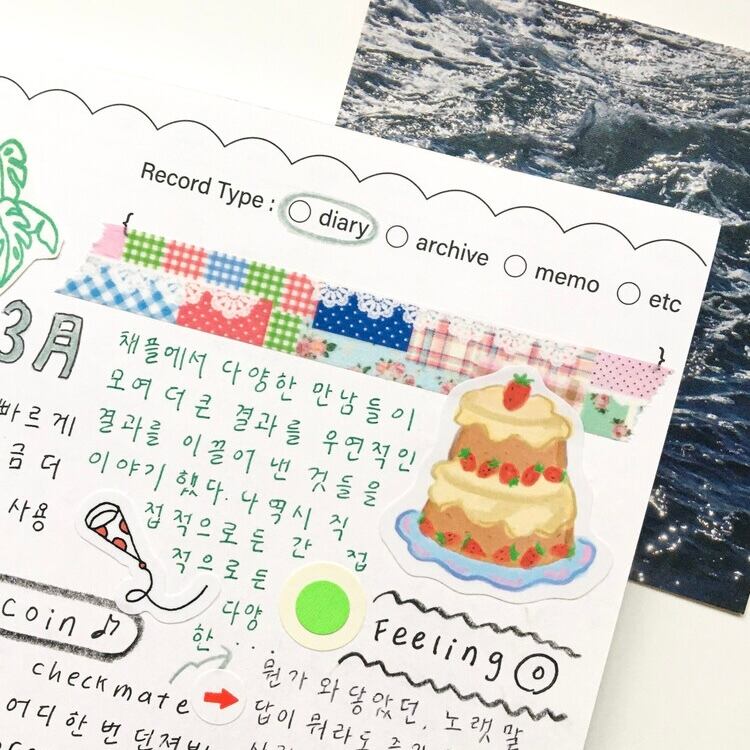 Record Type : diary archive memo etc
3月
채플에서 다양한 만남들이
모여 더 큰 결과를 우연적인
결과를 이끌어 낸 것들을
이야기 했다. 나 역시 직
접적으로든 간접
적으로든
다양
한...
빠르게
금 더
사용
coin
checkmate
어디 한 번 던져봐
Feeling
뭔가 와 닿았던, 노랫말
답이 뭐라도